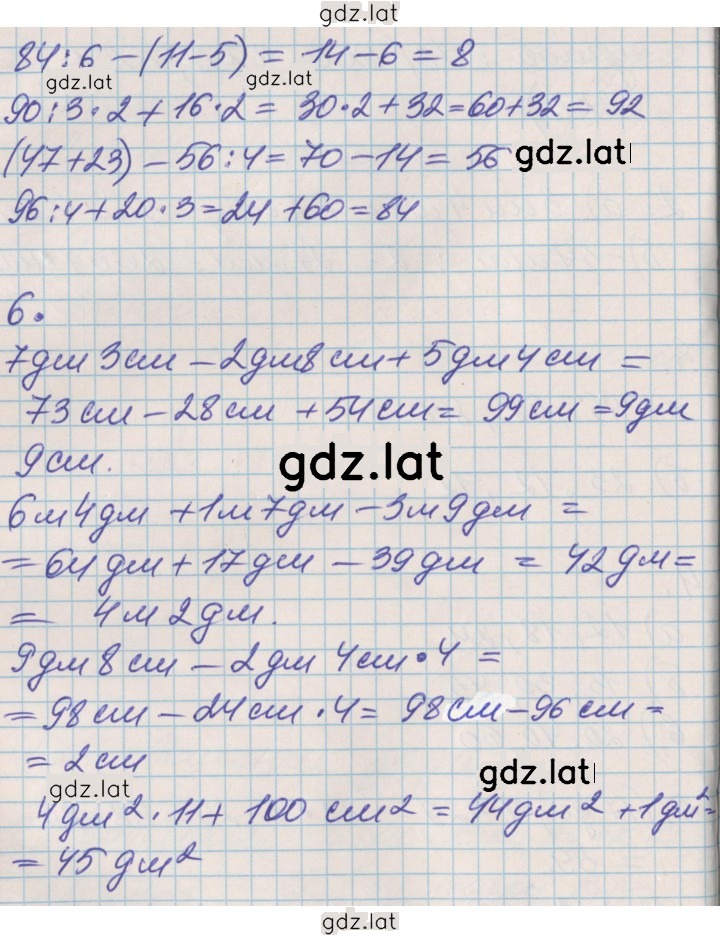 gdz.lat
84:6-(11-5) = 14-6 = 8
gdz.lat gdz.lat
90:3·2+16·2 = 30·2+32=60+32= 92
(47+23) -56:4= 70-14= 56 gdz.lat
96:4+20·3=24+60=84
6.
7дм 3см - 2дм8см + 5дм 4см =
73см - 28см + 54см = 99см =9дм
9см.
gdz.lat
6м4дм +1м7дм-3м9дм =
= 64дм+17дм - 39дм = 42дм=
= 4м 2дм.
9дм 8см - 2дм 4см·4 =
= 98см - 24см·4= 98см-96см=
= 2см
gdz.lat gdz.lat
4дм²·11+ 100 см² = 44дм² +1дм²=
= 45дм²
gdz.lat